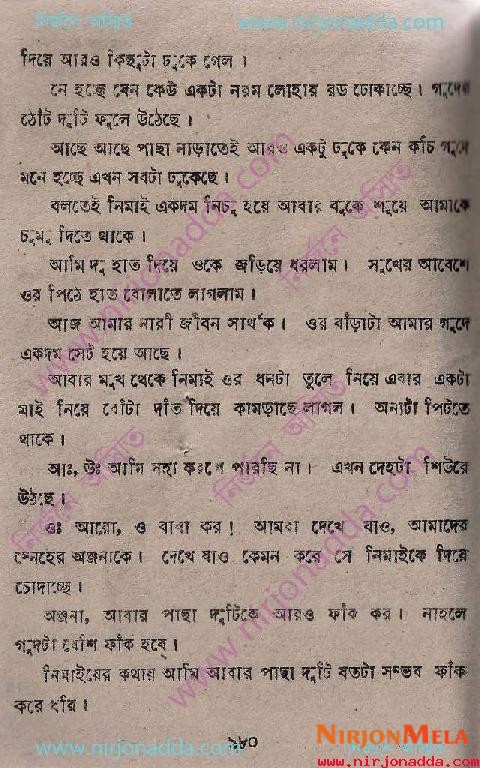 নির্জনে অস্মিত www.nirjonadda.com
দিয়ে আরও কিছুটা ঢুকে গেল।
নে হচ্ছে যেন কেউ একটা নরম লোহার রড ঢোকাচ্ছে। গুদের
ঠোঁট দুটি ফুলে উঠেছে।
আছে আছে পাছা নাড়াতেই আরও একটু ঢুকে কেন কচি গুদে
মনে হচ্ছে এখন সবটা ঢুকেছে।
বলতেই নিমাই একদম নিচু হয়ে আবার বুকে শুয়ে আমাকে
চুমু দিতে থাকে।
আমি দু হাত দিয়ে ওকে জড়িয়ে ধরলাম। সুখের আবেশে
ওর পিঠে হাত বোলাতে লাগলাম।
আজ আমার নারী জীবন সার্থক। ওর বাঁড়াটা আমার গুদে
একদম সেট হয়ে আছে।
আবার মুখ থেকে নিমাই ওর ধনটা তুলে নিয়ে এবার একটা
মাই নিয়ে বোঁটা দাঁত দিয়ে কামড়াছে লাগল। অন্যটা পিটতে
থাকে।
আঃ, উঃ আমি সহ্য করশে পারছি না। এখন দেহটা শিউরে
উঠছে।
ওঃ আগো, ও বাবা কর! আমবা দেখে যাও, আমাদের
স্নেহের অঞ্জনাকে। দেখে যাও কেমন করে সে নিমাইকে দিয়ে
চোদাচ্ছে।
অঞ্জনা, আবার পাছা দুটিকে আরও ফাঁক কর। নাহলে
গুদটা বেশি ফাঁক হবে।
নিমাইয়ের কথায় আমি আবার পাছা দুটি যতটা সম্ভব ফাঁক
করে ধরি।
১৮০
NIRJONMELA
www.nirjonadda.com
www.nirjonadda.com